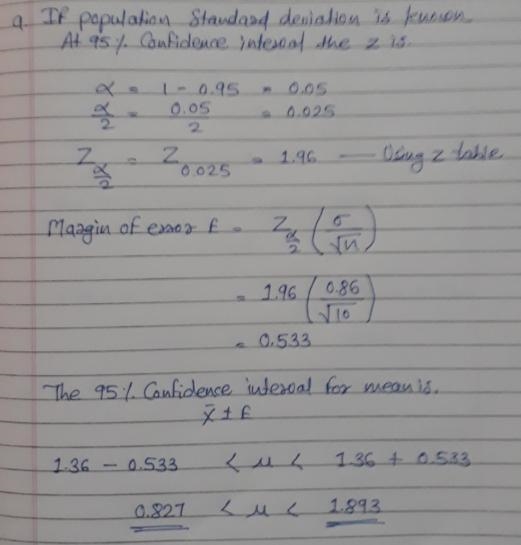 a. If population Standard deviation is known
At 95% Confidence interval the z is.
α = 1 - 0.95 = 0.05
α/2 = 0.05/2 = 0.025
Z α/2 = Z 0.025 = 1.96 — Using z table
Margin of error E = Z α/2 (σ/√n)
= 1.96 (0.86/√10)
= 0.533
The 95% Confidence interval for mean is.
x̄ ± E
1.36 - 0.533 < μ < 1.36 + 0.533
0.827 < μ < 1.893